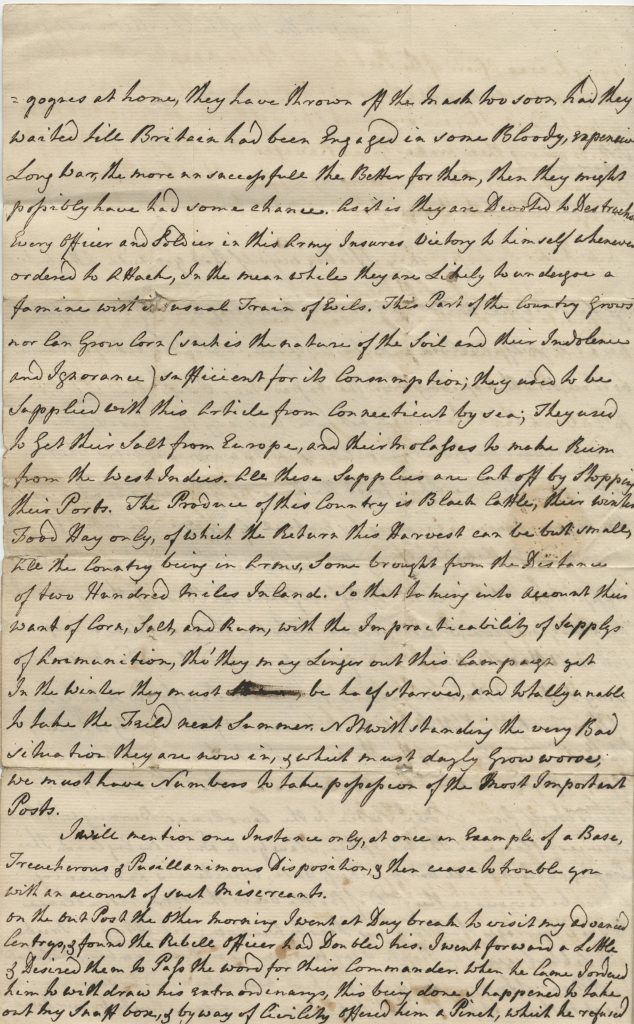 = gogues at home, they have thrown off the Mask too soon, had they
waited till Britain had been Engaged in some Bloody, expensive
Long War, the more unsuccessfull the Better for them, then they might
possibly have had some chance. As it is they are Devoted to Destruction
Every Officer and Soldier in this Army Insures Victory to himself whenever
ordered to Attack, In the mean while they are Likely to undergoe a
famine with its usual Train of Evils. This Part of the Country Grows
nor Can Grow Corn (such is the nature of the Soil and their Indolence
and Ignorance) sufficient for its Consumption; they used to be
Supplied with this Article from Connecticut by sea; They used
to Get their Salt from Europe, and their molasses to make Rum
from the West Indies. All these Supplies are Cut off by Stopping
their Ports. The Produce of this Country is Black Cattle, their winter
Food Hay only, of which the Return this Harvest can be but small,
All the Country being in Arms, Some brought from the Distance
of two Hundred miles Inland. So that taking into Account this
want of Corn, Salt, and Rum, with the Impracticability of Supplys
of Ammunition, tho' they may Linger out this Campaign yet
In the winter they must be half starved, and totally unable
to take the Feild next Summer. Notwithstanding the very Bad
situation they are now in, & which must dayly Grow worse;
we must have Numbers to take possession of the Most Important
Posts.
I will mention one Instance only, at once an Example of a Base,
Treacherous & Pusillanimous Disposition, & then cease to trouble you
with an account of such Miscreants.
On the out Post the Other morning I went at Day break to visit my advanced
Centrys, & found the Rebell Officer had Doubled his. I went forward a Little
& Desired them to Pass the word for their Commander. When he Came I ordered
him to withdraw his extraordinarys, this being done I happened to take
out my Snuff box, & by way of Civility offered him a Pinch, which he refused